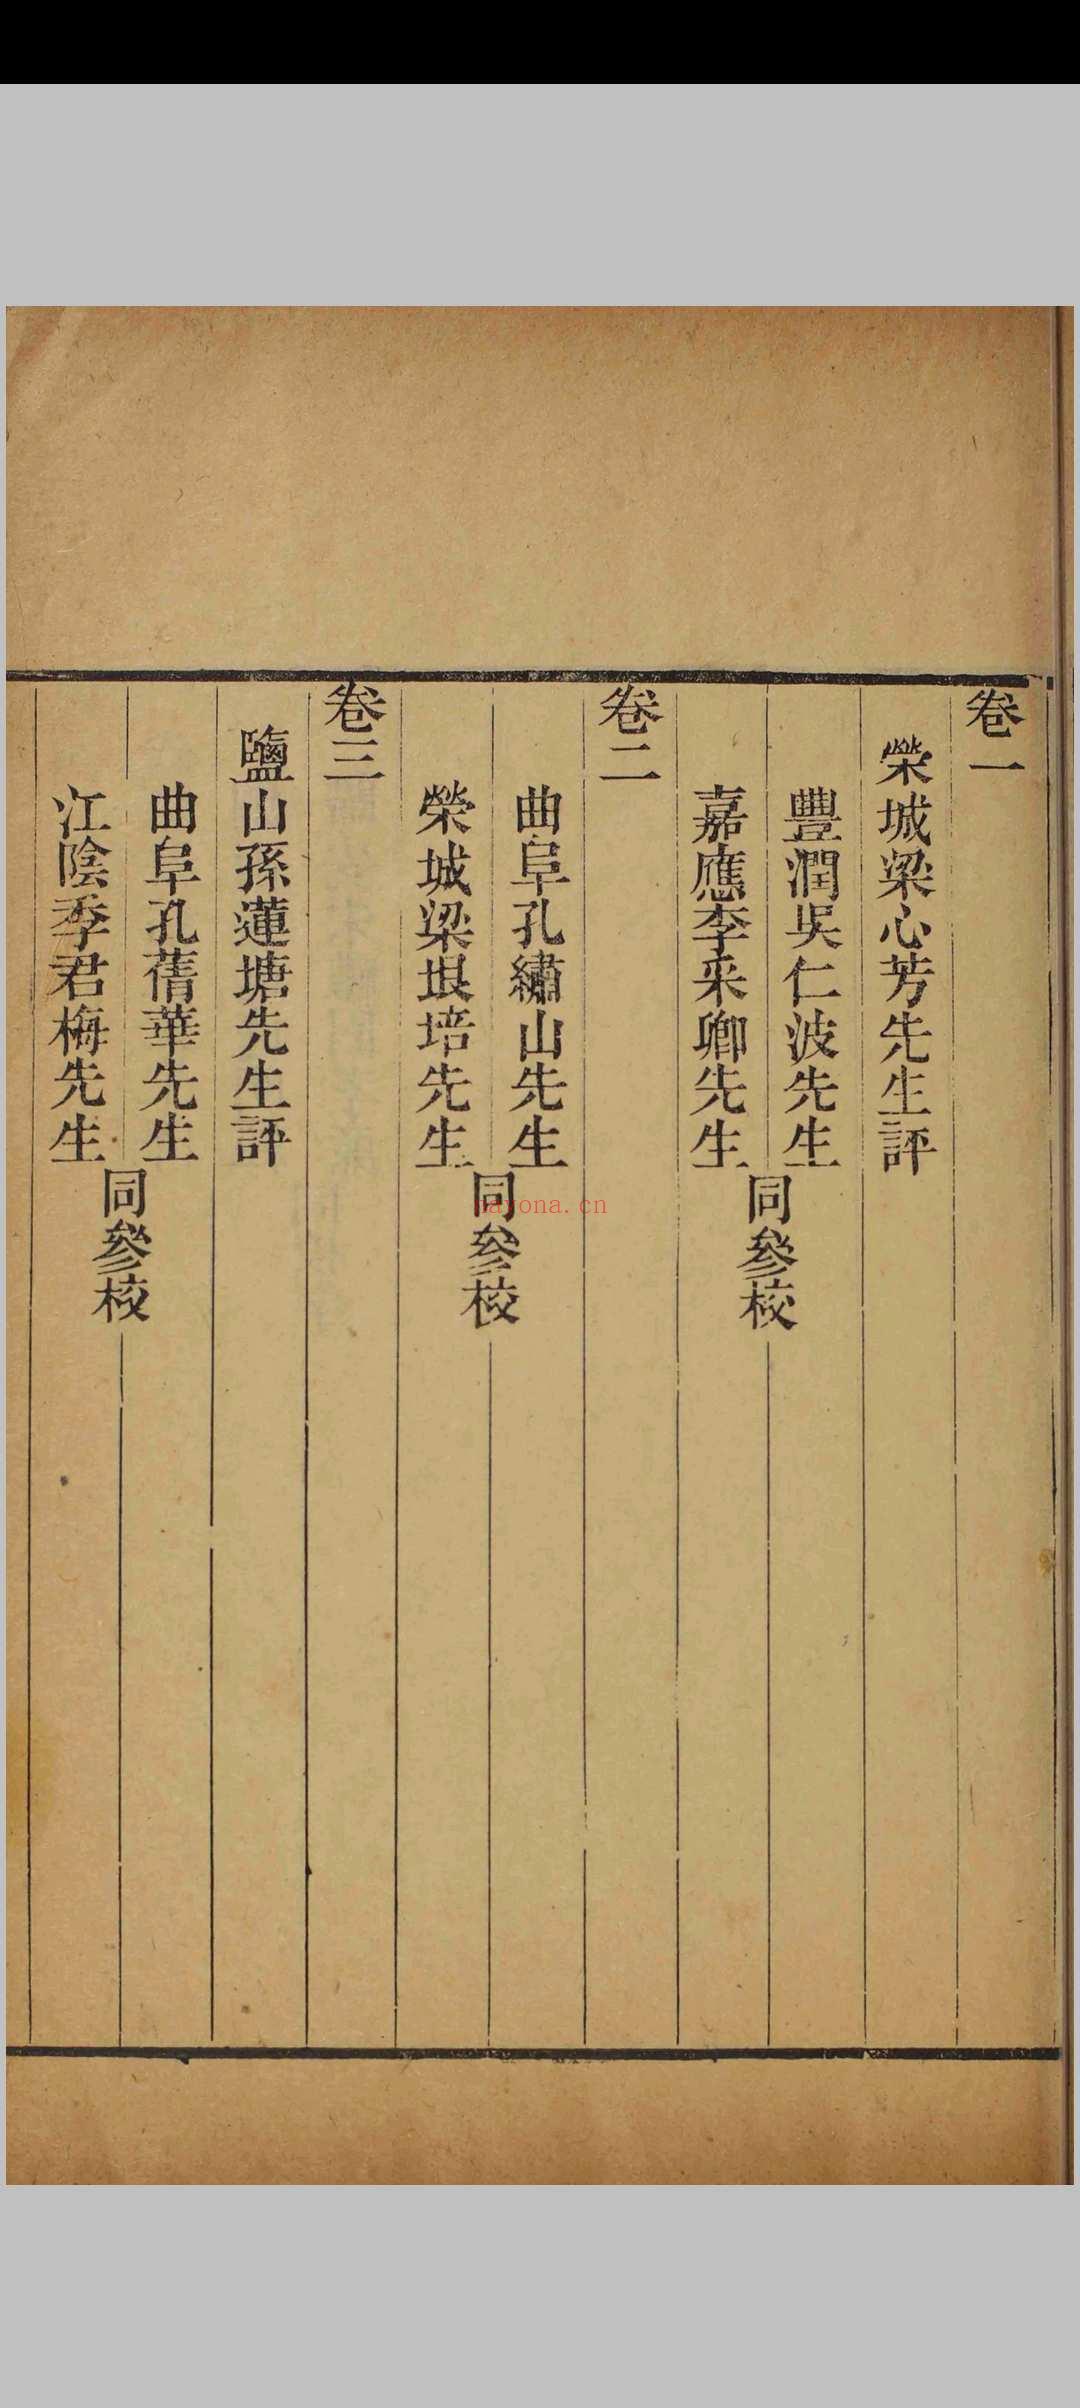 卷一
榮城梁心芳先生評
豐潤吳仁波先生
嘉應李采卿先生
同參校
卷二
曲阜孔繡山先生
榮城梁垠培先生
同參校
卷三
鹽山孫蓮塘先生評
曲阜孔蒨華先生
江陰季君梅先生
同參校
nayona.cn